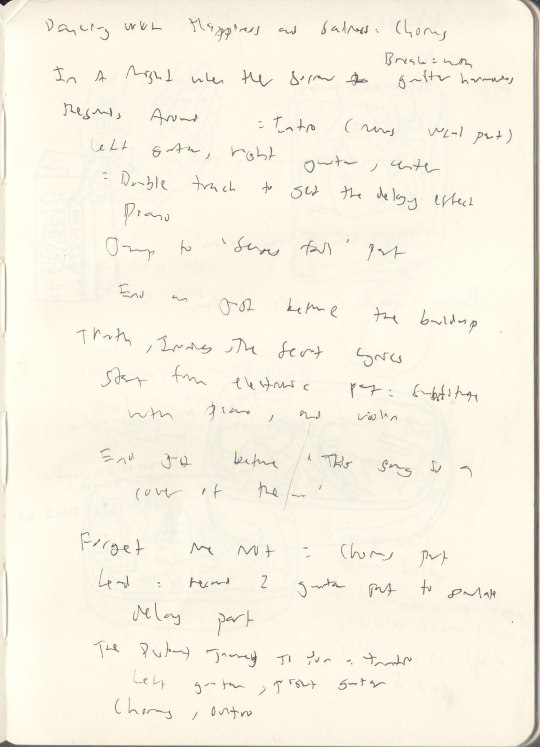 Dancing with Happiness and Sadness : Chorus
Break with
In A Night when the guitar harmonics
Around = Intro ( part)
Left guitar, right guitar, center
= Double track to get the delay effect
Piano
Jump to ' ' part
End on just before the buildup
Truth, , The Secret Lyrics
Start from electronic part : Substitute
with piano, and violin
End just before 'This song is a
cover of the ...'
Forget Me Not = Chorus part
Lead : record 2 guitar part to simulate
delay part
The To You = Intro
Left guitar, right guitar
Chorus, outro